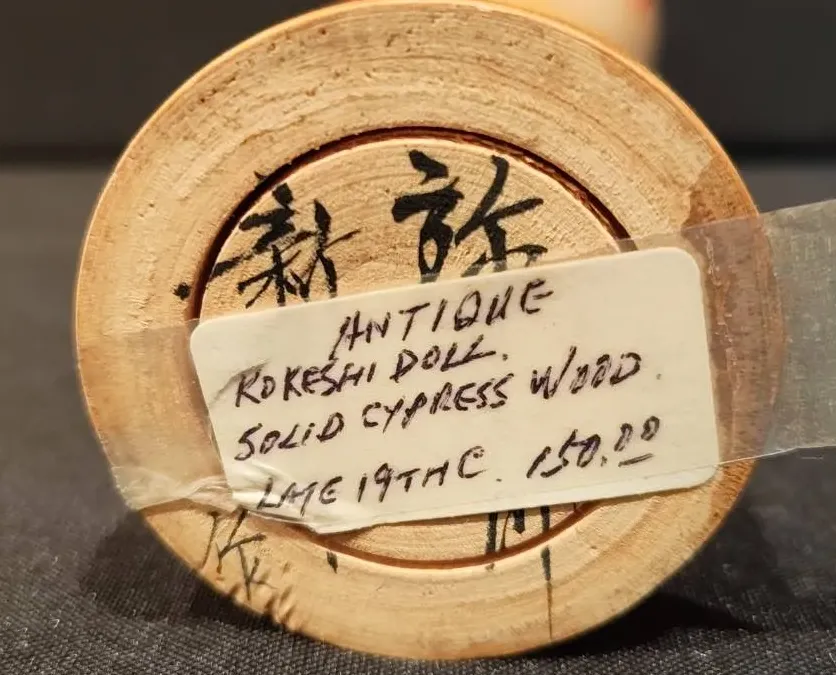 新
ANTIQUE
KOKESHI DOLL.
SOLID CYPRESS WOOD.
LATE 19TH C. 150.00